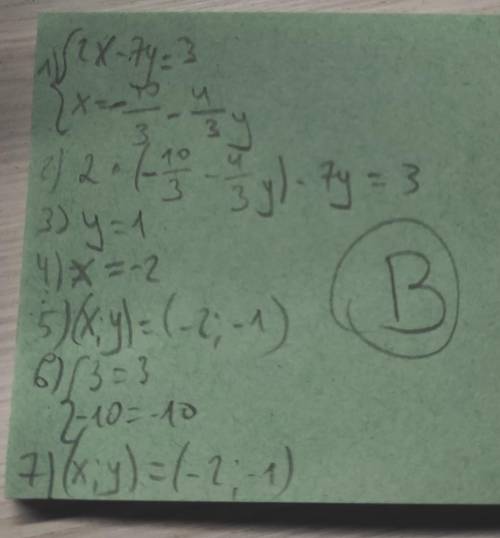 1) { 2x - 7y = 3
x = -10/3 - 4/3 y
2) 2 · (-10/3 - 4/3 y) - 7y = 3
3) y = 1
4) x = -2
5) (x; y) = (-2; -1)
6) { 3 = 3
-10 = -10
7) (x; y) = (-2; -1)
B